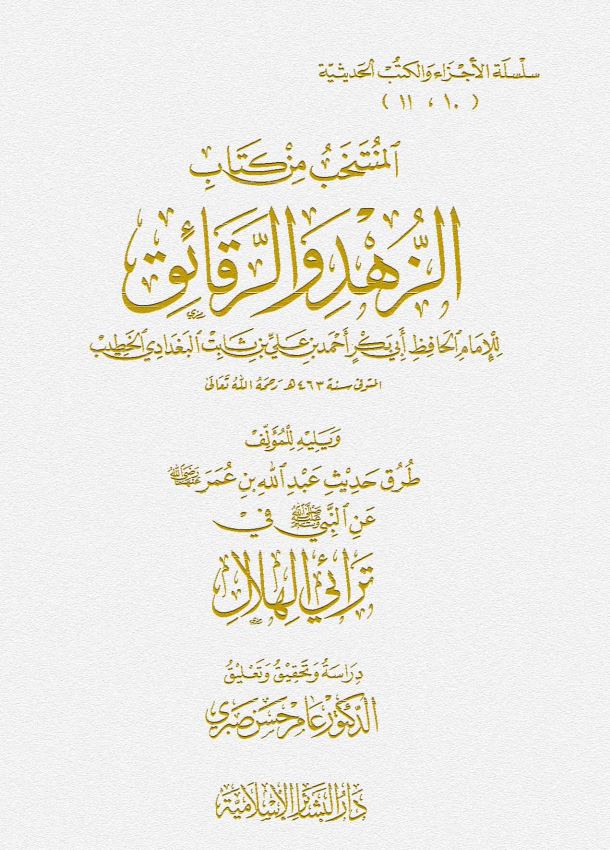 سلسلة الأجزاء والكتب الحديثية
( ١٠ ، ١١ )
المُنتَخَبُ مِنْ كتَابِ
الزُّهْدِ وَالرَّقَائِقِ
لِلإِمَامِ الحَافِظِ أَبِي بَكْرٍ أَحْمَدَ بنِ عَلِيِّ بنِ ثَابِتٍ البَغدَادِي الخَطِيْب
المتوفى سنة ٤٦٣هـ رَحمَهُ اللهُ تَعَالى
وَيَليْهِ لِلْمُؤَلِّفِ
طُرُق حَدِيْثِ عَبْدِ اللهِ بنِ عُمَرَ رَضِيَ اللهُ عَنْهُمَا
عَنِ النَّبِيِّ ﷺ فِي
تَرَائِي الهِلَالِ
دِرَاسَةُ وَتَحْقِيْقُ وَتَعْلِيْقُ
الدّكتور عَامِر حَسَن صَبرِي
دَارُ البَشَائِرِ الإِسْلَامِيَّة